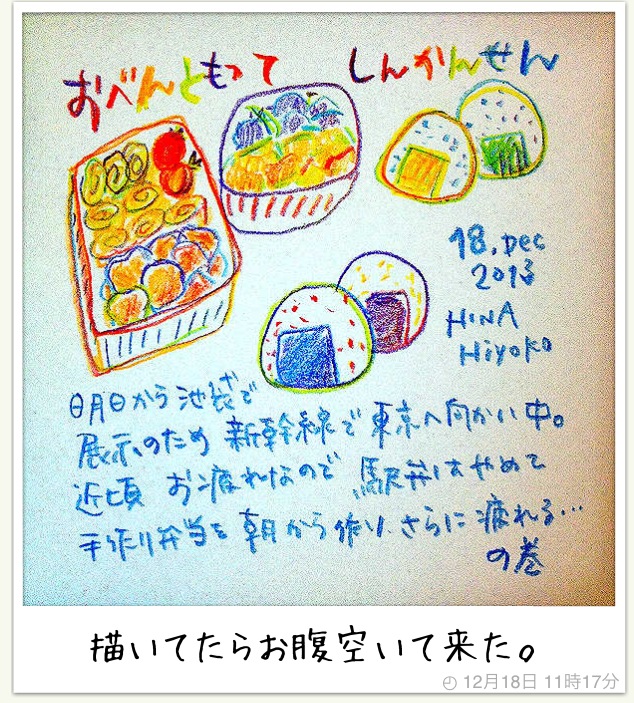 おべんともって しんかんせん
18. Dec
2013
HiNA
Hiyoko
明日から池袋で
展示のため 新幹線で東京へ向かい中。
近頃 お疲れなので、駅弁はやめて
手作り弁当を朝から作り、さらに疲れる…
の巻
描いてたらお腹空いて来た。
12月18日 11時17分